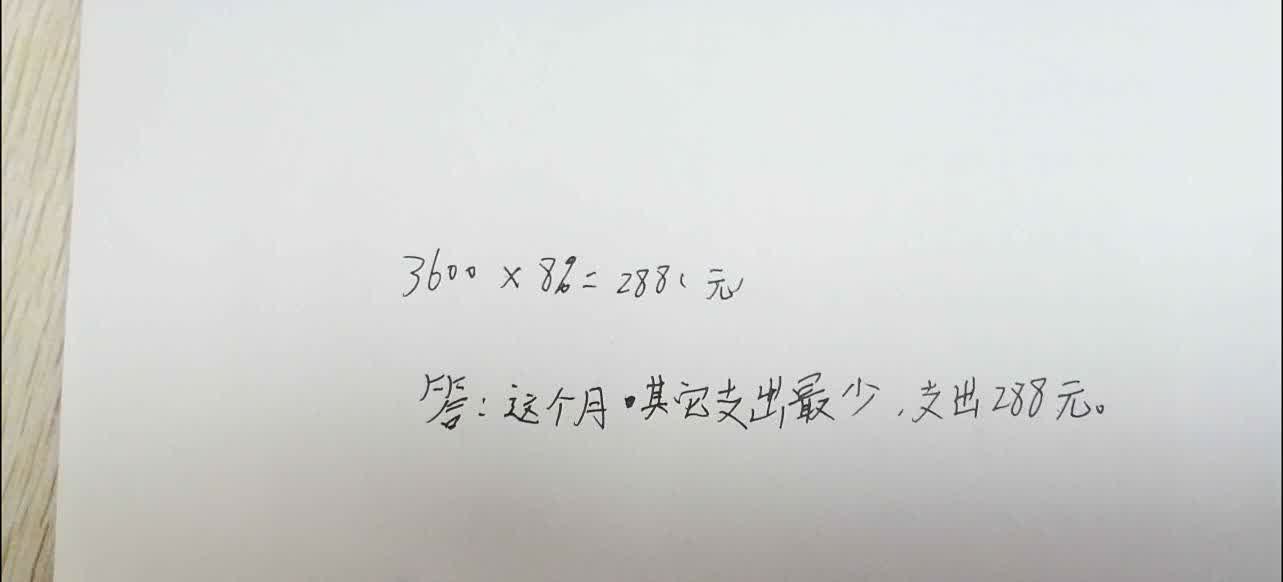 3600 × 8% = 288(元)
答:这个月其它支出最少,支出288元。